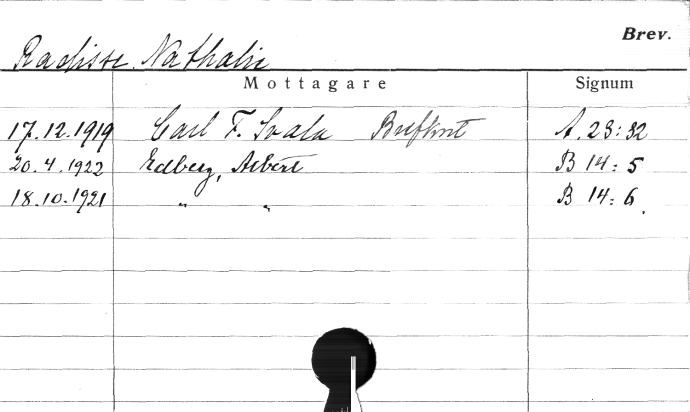 Brev.
Radisse, Nathalie
Mottagare Signum
17.12.1919 Carl F. Svala Brefkort A. 23:32
20.4.1922 Edberg, Albert B 14:5
18.10.1921 " " B 14:6.